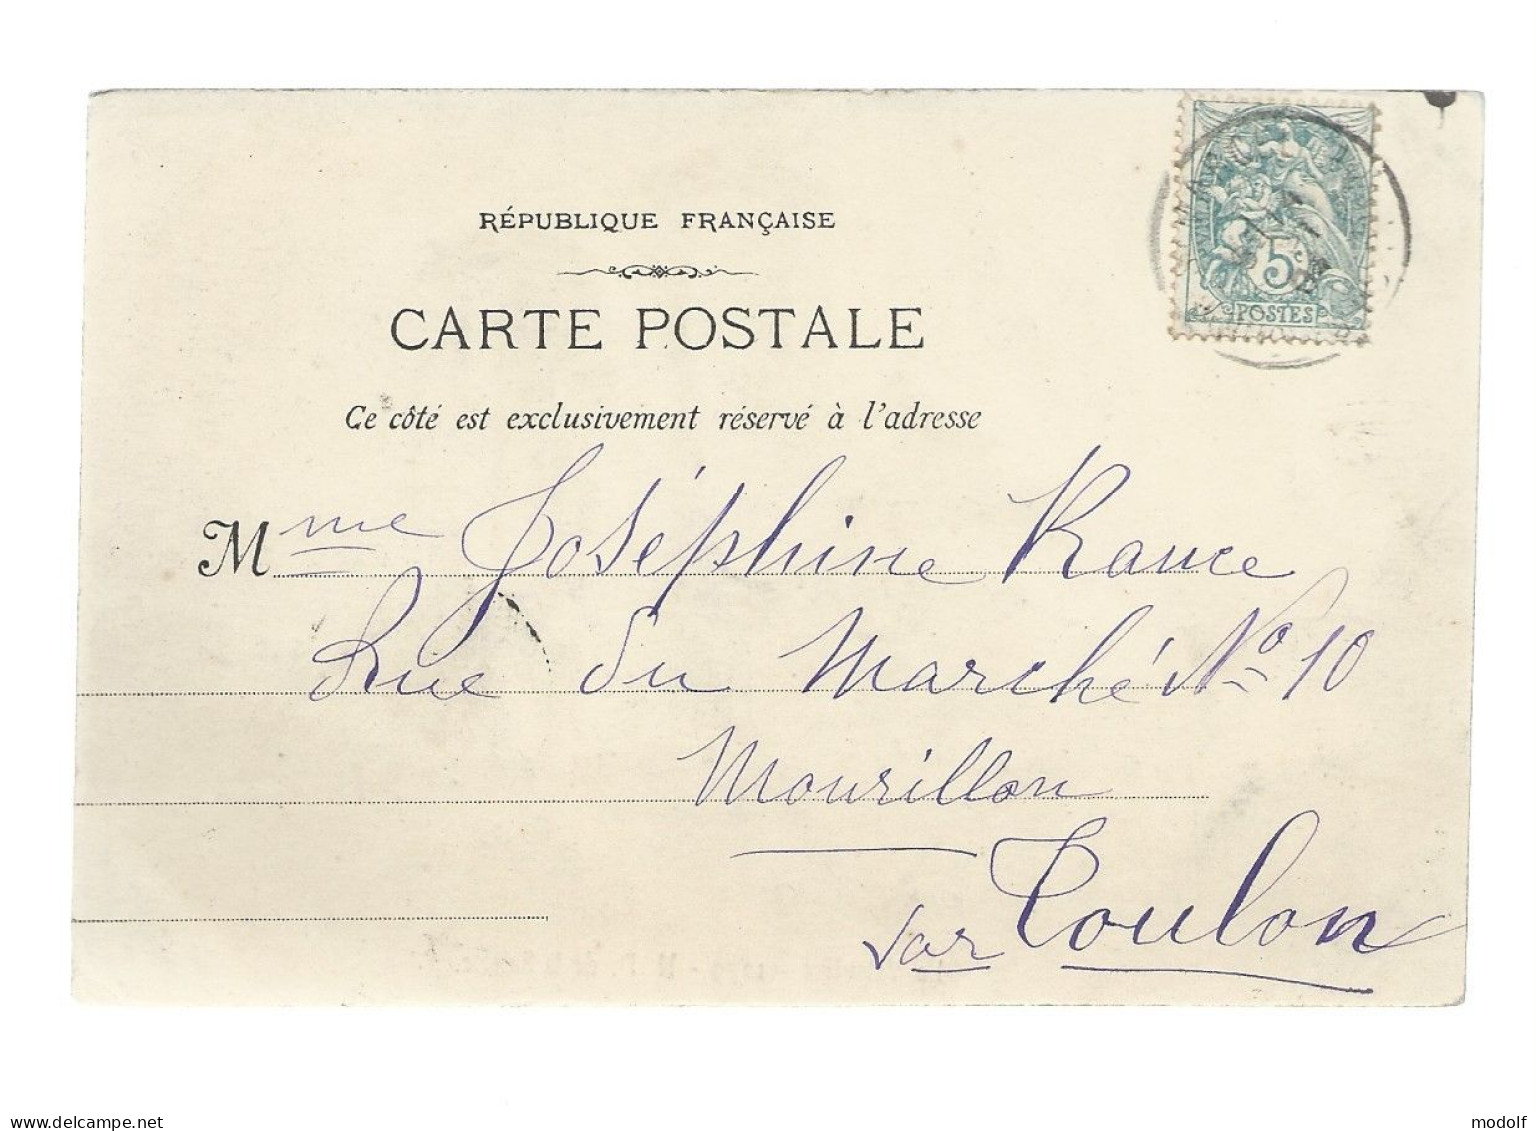 RÉPUBLIQUE FRANÇAISE
CARTE POSTALE
Ce côté est exclusivement réservé à l'adresse
5c
POSTES
Mme Joséphine Rance
Rue du Marché No 10
Mourillon
Var Toulon
delcampe.net
modolf